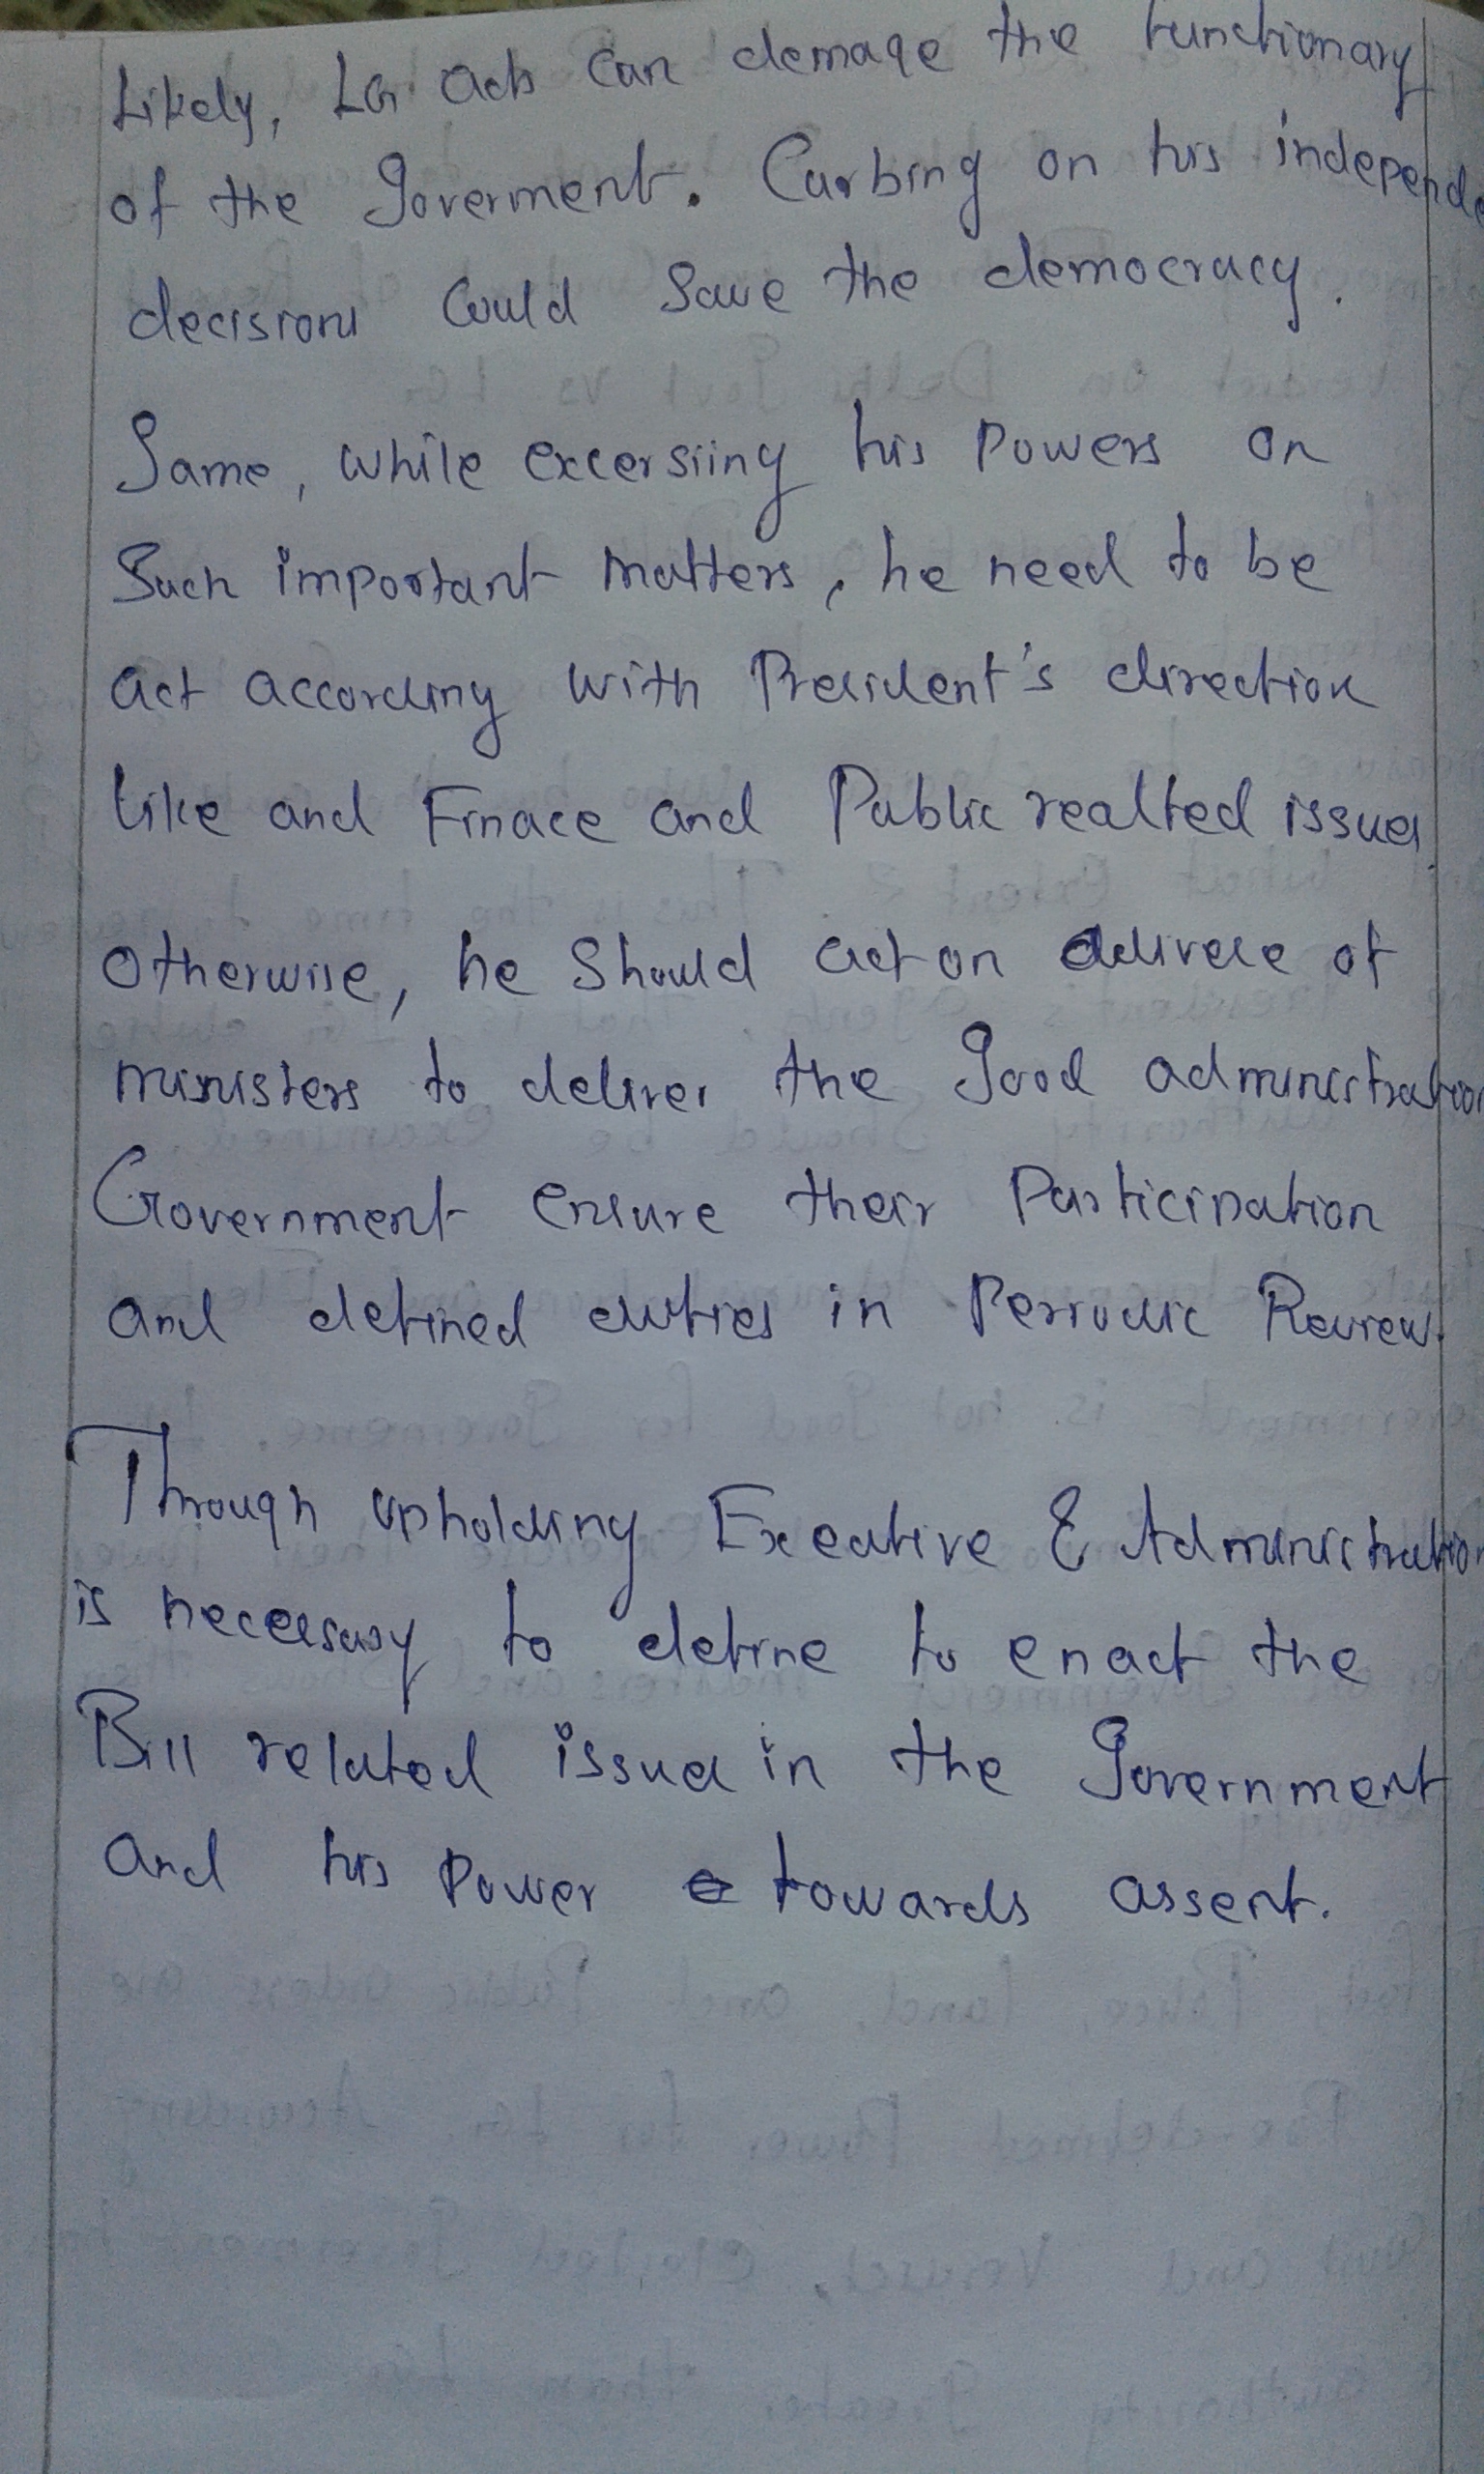 Likely, LG acts can demage the functionary
of the Goverment. Curbing on his independe
decisions could save the democracy.
Same, while excersiing his powers on
such important matters, he need to be
act according with President's direction
like and Finace and Public realted issues.
otherwise, he should act on of
ministers to deliver the good administration
Government ensure their participation
and defined duties in Periodic Review.
Through upholding Executive & Administration
is necessary to define to enact the
Bill related issues in the government
and his power towards assent.